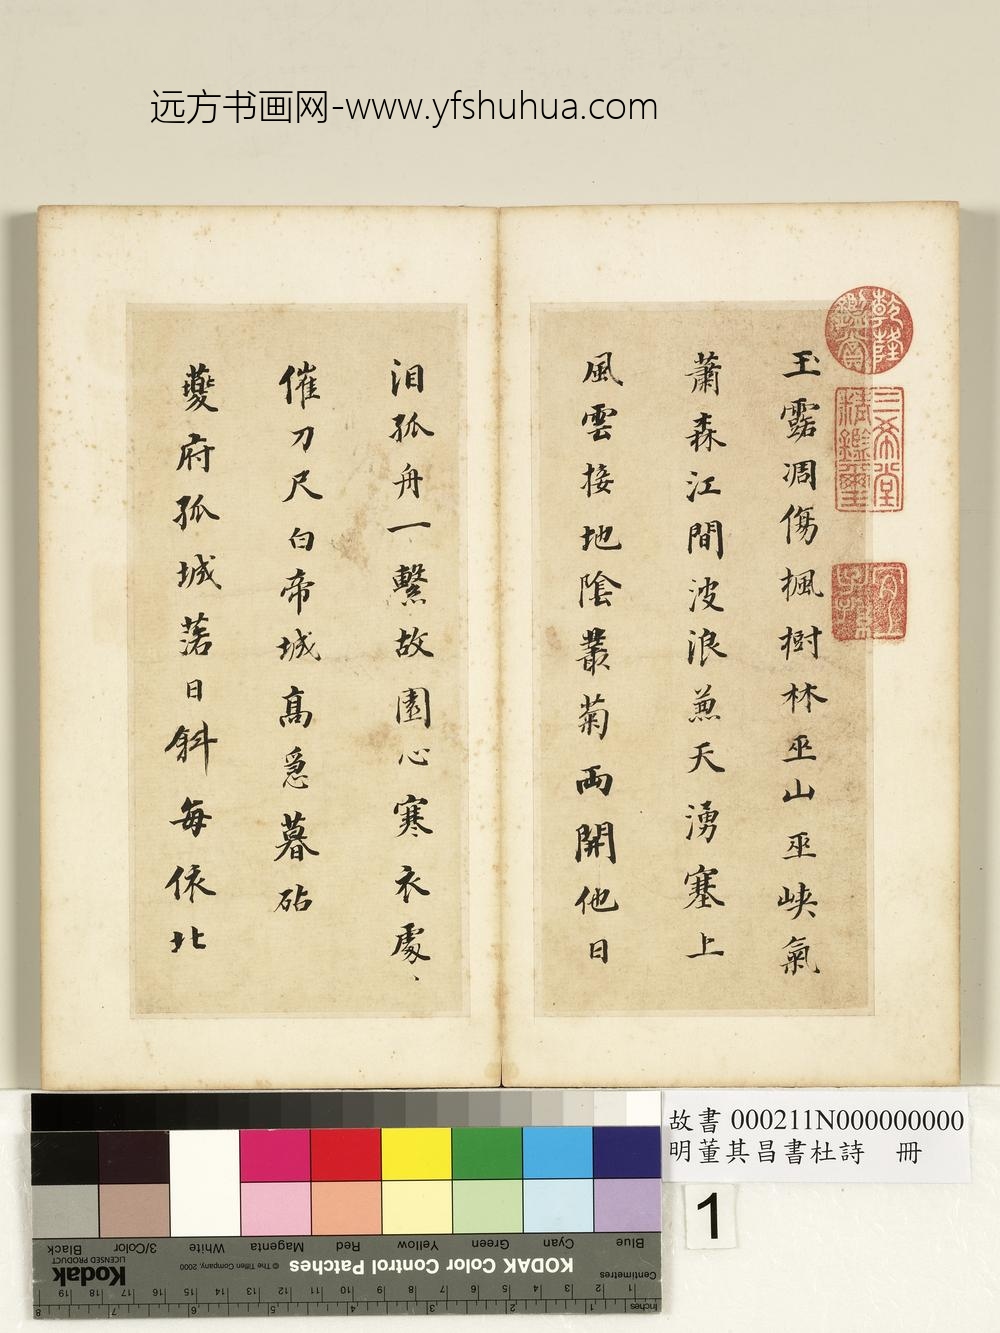 远方书画网-www.yfshuhua.com
玉露凋傷楓樹林巫山巫峽氣
蕭森江間波浪兼天湧塞上
風雲接地陰叢菊兩開他日
淚孤舟一繫故園心寒衣處、
催刀尺白帝城高急暮砧
夔府孤城落日斜每依北
乾隆鑑賞
三希堂精鑑璽
宜子孫
故書 000211N000000000
明董其昌書杜詩 冊
1
Blue Cyan Green Yellow Red Magenta White 3/Color Black
KODAK Color Control Patches
© The Tiffen Company, 2000
Kodak
LICENSED PRODUCT
Centimetres
1 2 3 4 5 6 7 8 9 10 11 12 13 14 15 16 17 18 19
Inches
1 2 3 4 5 6 7 8